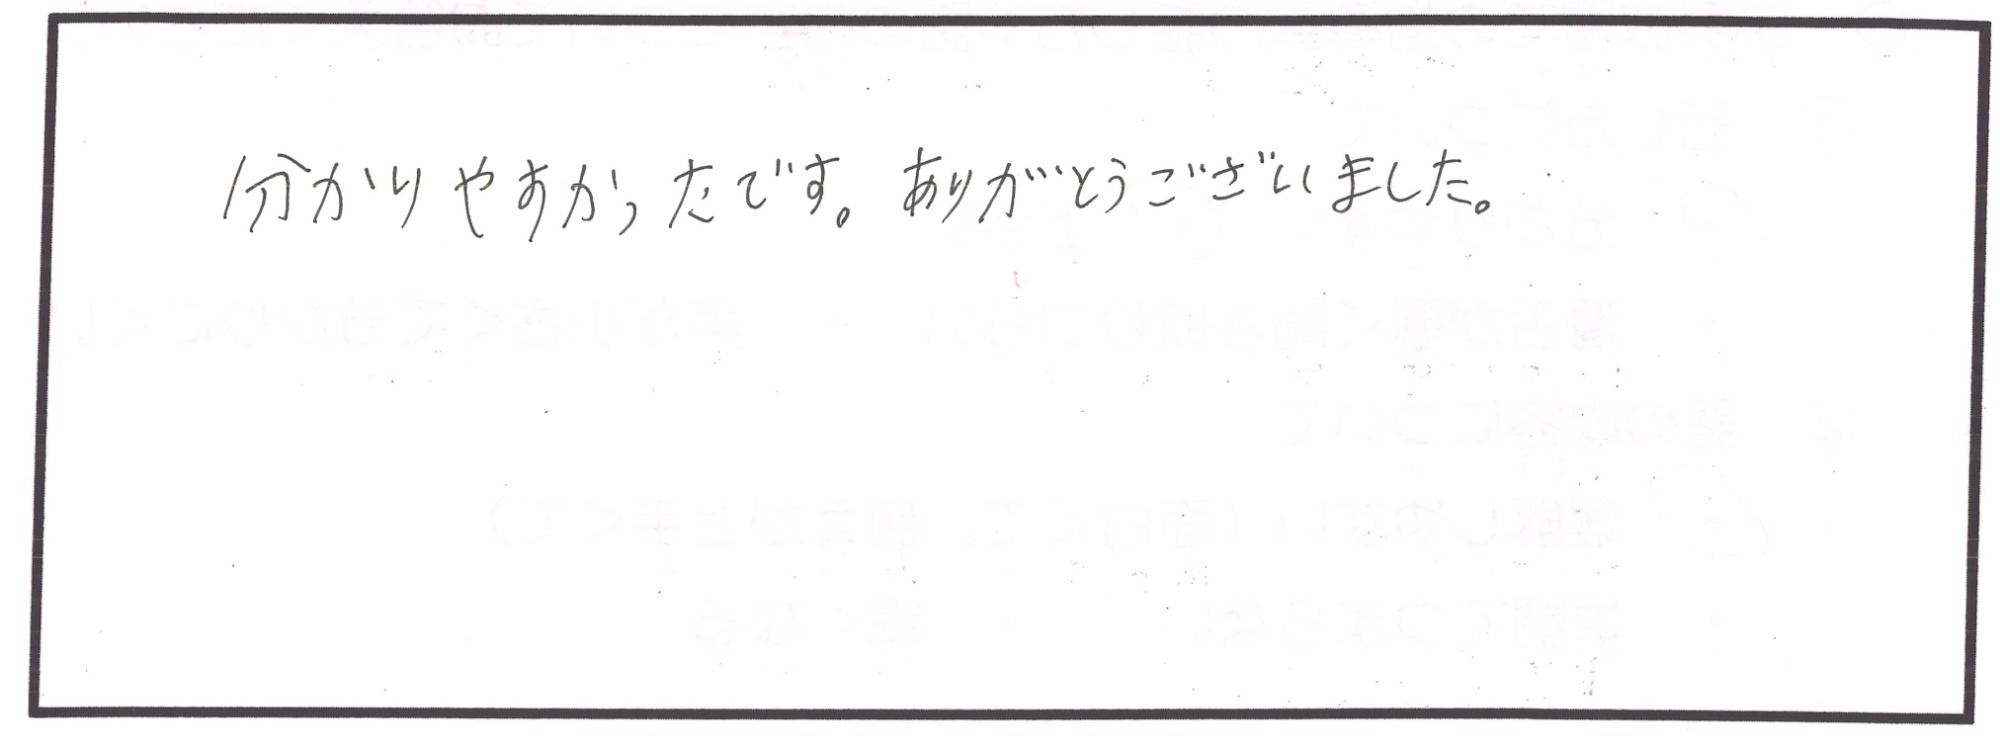 分かりやすかったです。ありがとうございました。